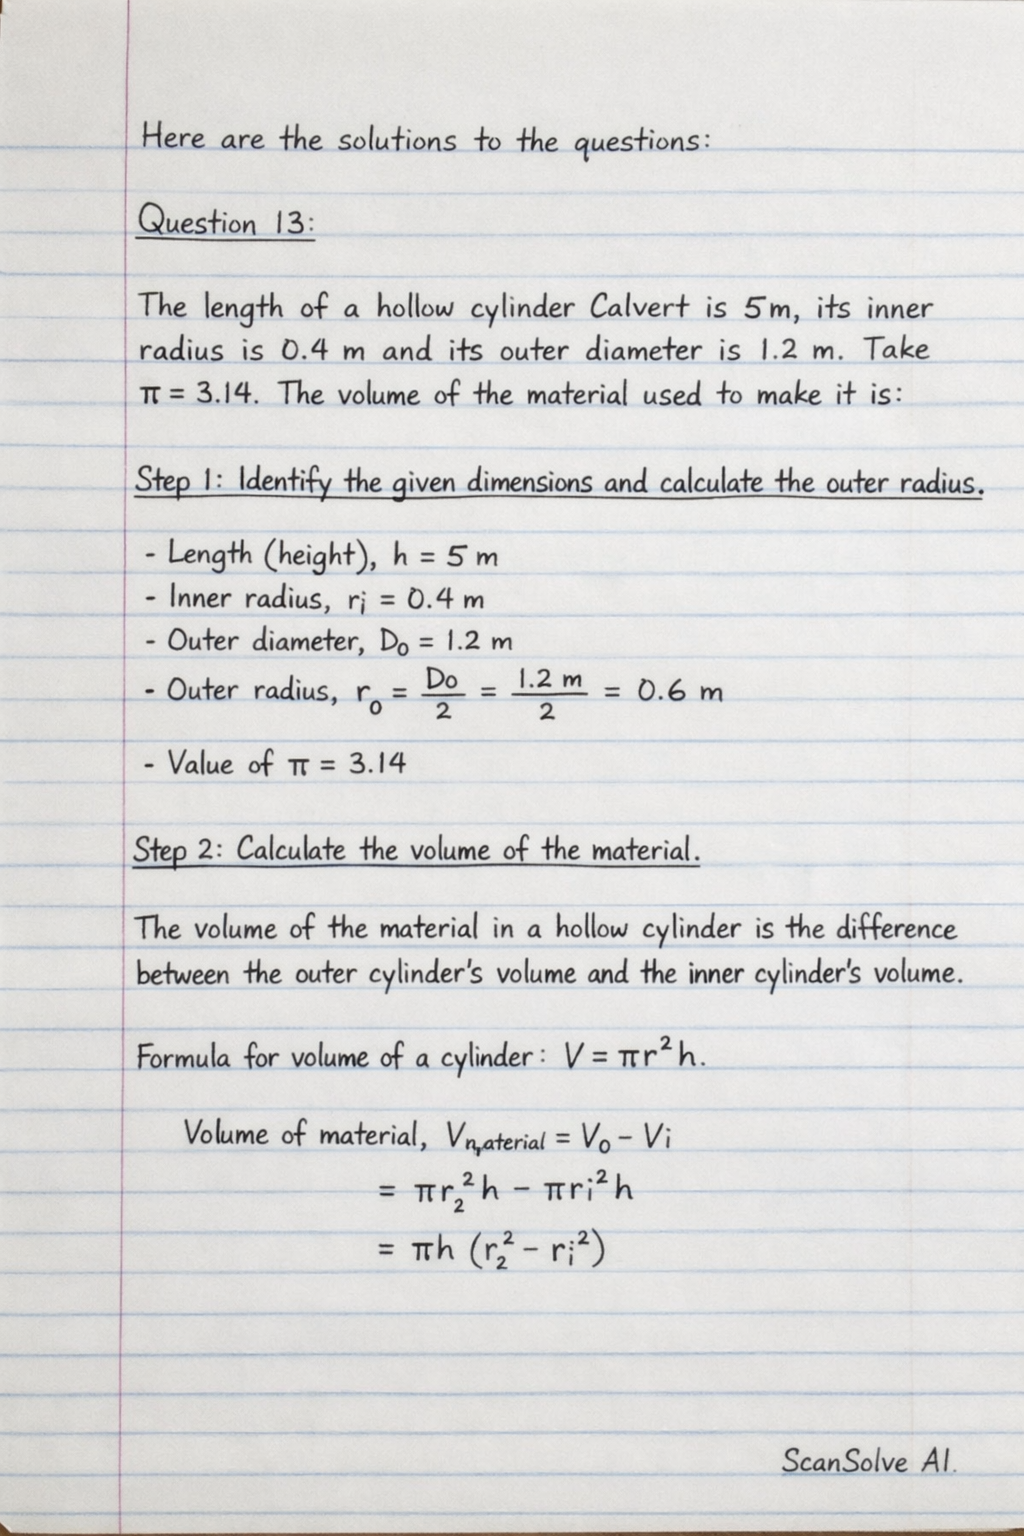 Here are the solutions to the questions:
Question 13:
The length of a hollow cylinder Calvert is 5m, its inner
radius is 0.4 m and its outer diameter is 1.2 m. Take
π = 3.14. The volume of the material used to make it is:
Step 1: Identify the given dimensions and calculate the outer radius.
- Length (height), h = 5 m
- Inner radius, rᵢ = 0.4 m
- Outer diameter, D₀ = 1.2 m
- Outer radius, r₀ = Do/2 = 1.2 m/2 = 0.6 m
- Value of π = 3.14
Step 2: Calculate the volume of the material.
The volume of the material in a hollow cylinder is the difference
between the outer cylinder's volume and the inner cylinder's volume.
Formula for volume of a cylinder: V = πr²h.
Volume of material, Vmaterial = V₀ - Vi
= πr₂²h - πri²h
= πh (r₂² - rᵢ²)
ScanSolve AI.